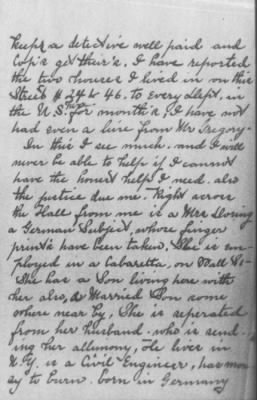 keeps a detective well paid and
Cop's get their's, I have reported
the two houses I lived in on this
Street # 24 & 46. to every Dept, in
the U.S. for month's, I have not
had even a line from Mr Gregory.
In this I see much. and I will
never be able to help if I cannot
have the honest help I need. also
the justice due me. Right across
the Hall from me is a Mrs Doring
a German Subject, whose finger
prints have been taken, She is em-
ployed in a Cabaretta, on Wall St-
She has a Son living here with
her also, a Married Son some
where near by, She is seperated
from her husband. who is send-
ing her allimony, He lives in
N.Y. is a Civil Engineer, has mon
ey to burn. born in Germany